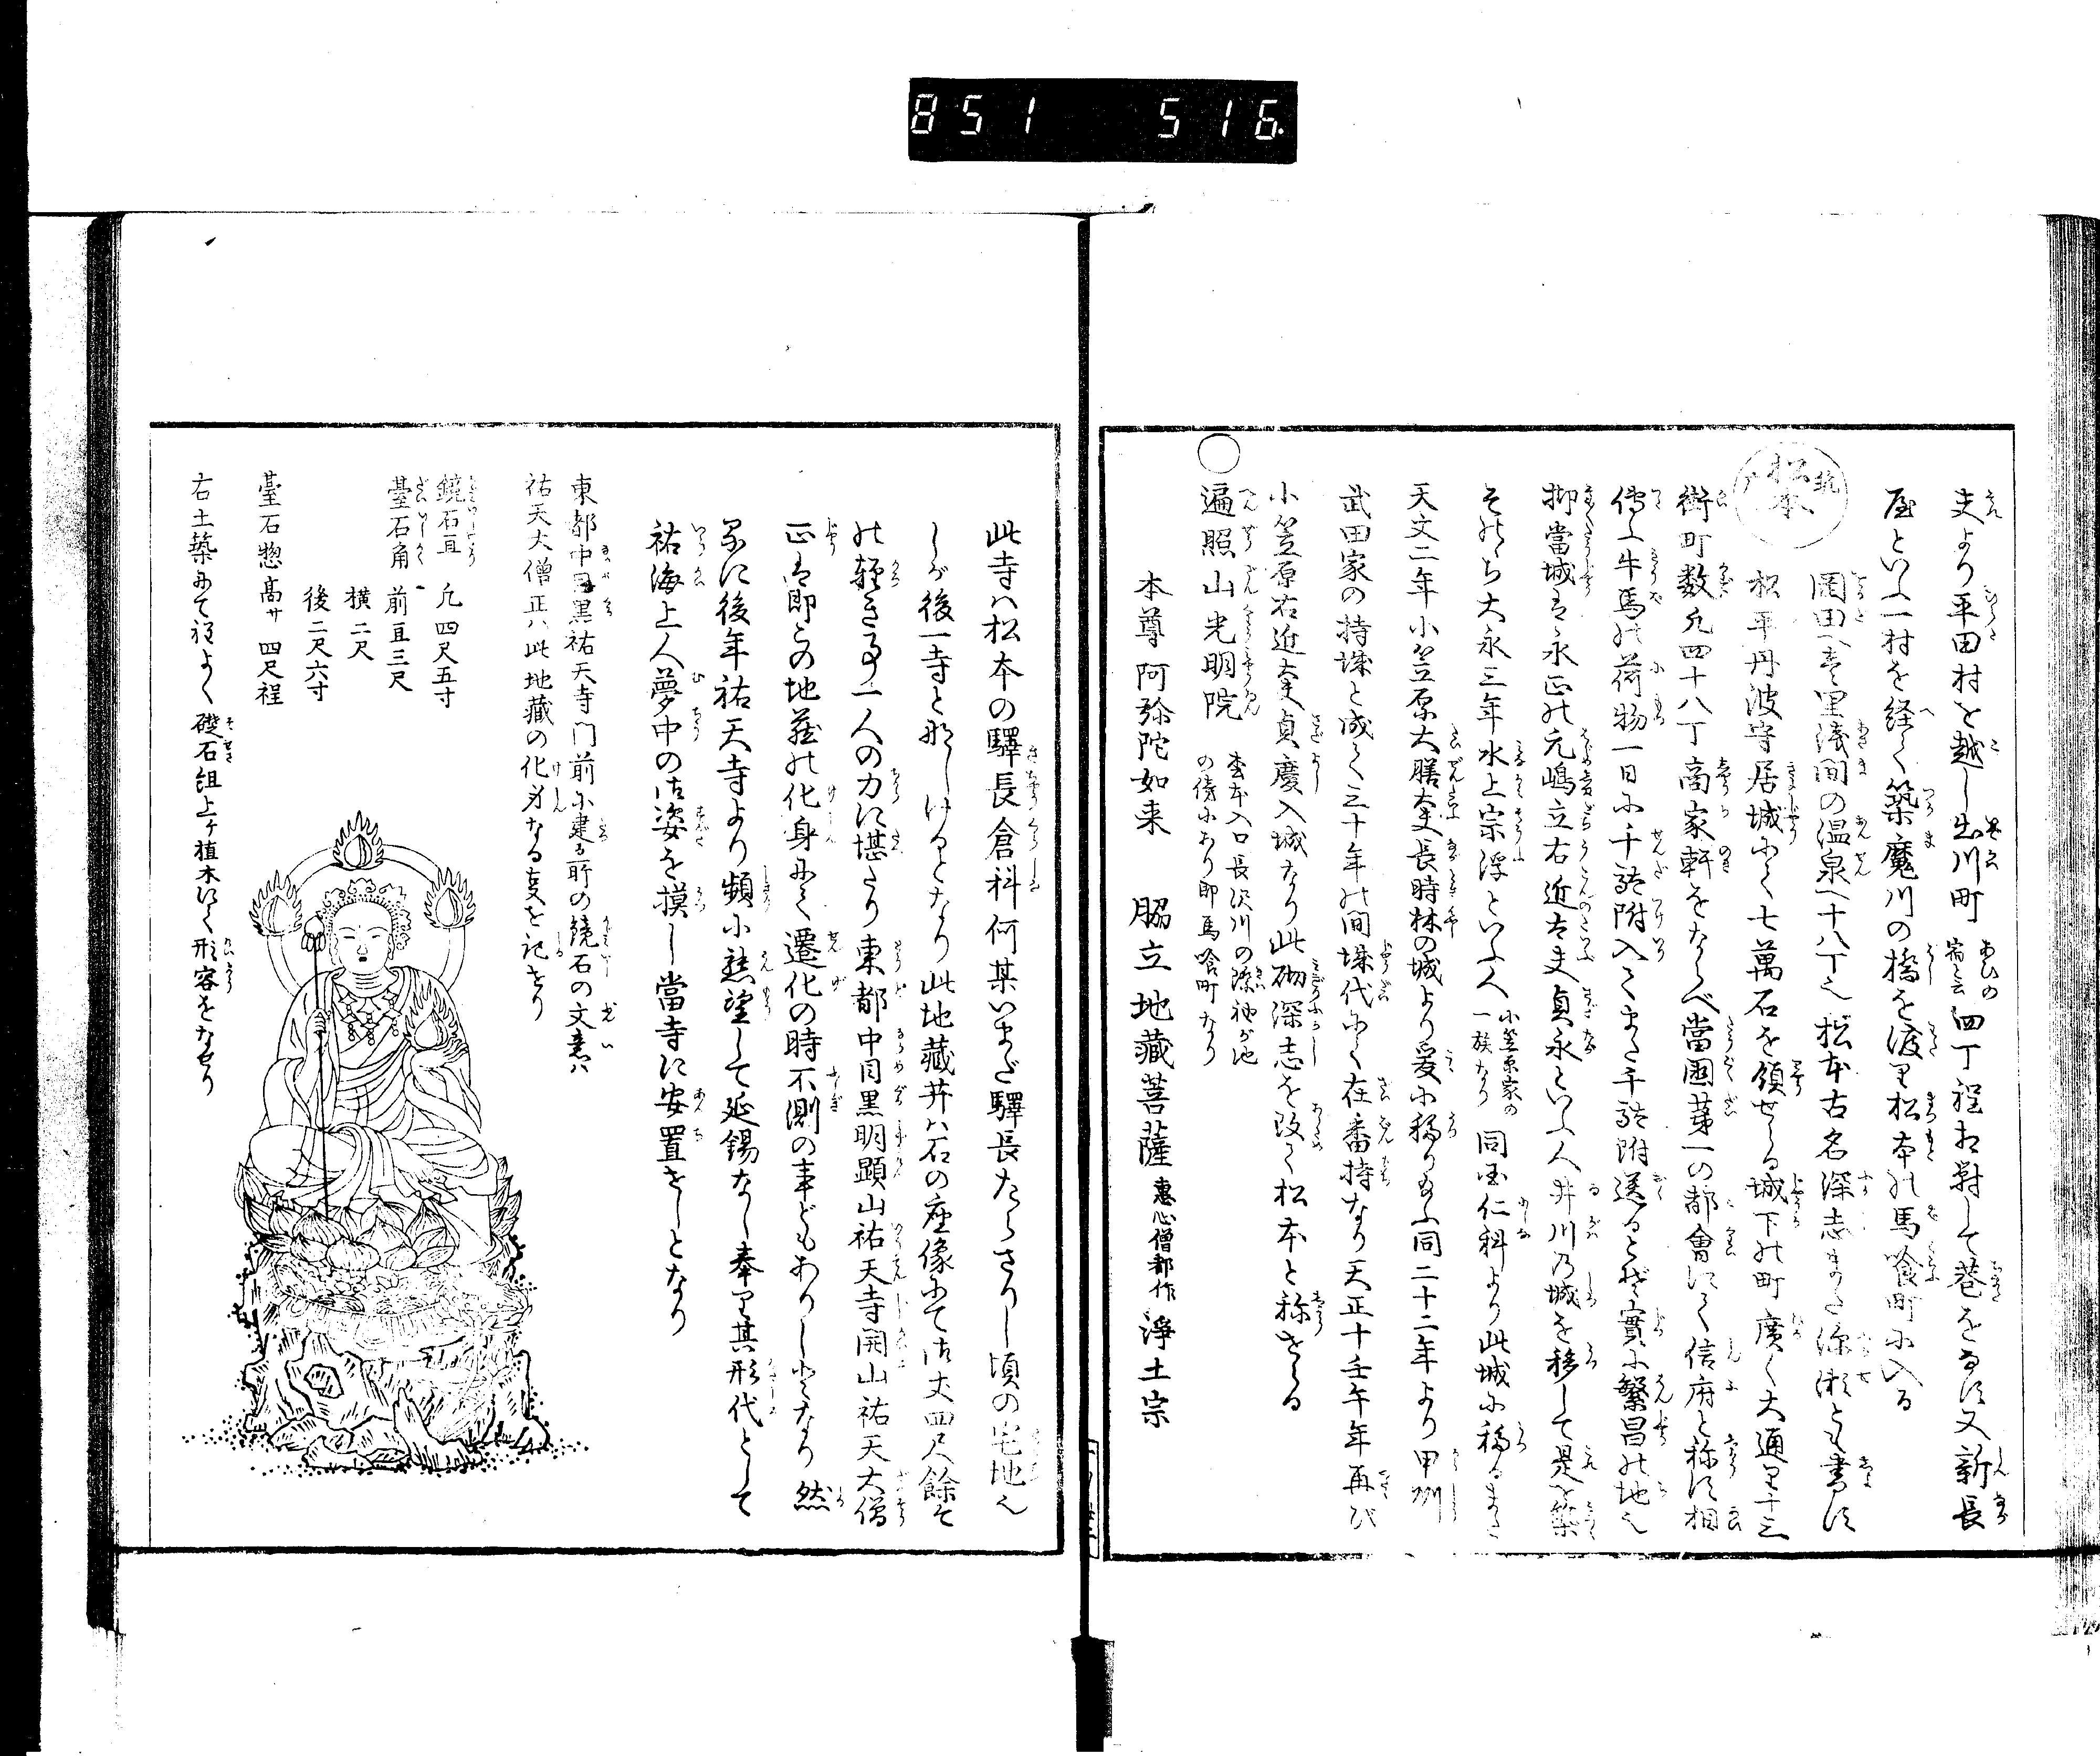 851 516
夫より平田村を越し出川町 あひの宿と云 四丁程相對して巷をなす又新長
屋といふ一村を経て築魔川の橋を渡り松本の馬喰町に入る
筑 松本
岡田へ壱里浅間の温泉へ十八丁也松本古名深志また深瀬とも書す
松平丹波守居城にて七萬石を領せらる城下の町廣く大通り十三
街町数凡四十八丁商家軒をならべ當國第一の都會にて信府と称す相
傳ふ牛馬の荷物一日に千駄附入てまた千駄附送るとぞ實に繁昌の地也
抑當城は永正の元嶋立右近太夫貞永といふ人井川乃城を移して是を築
そのち大永三年水上宗浮といふ人 小笠原家の一族なり 同國仁科より此城に移るまた
天文二年小笠原大膳太夫長時林の城より爰に移り給ふ同二十二年より甲州
武田家の持城と成て三十年の間城代にて在番持なり天正十壬午年再び
小笠原右近太夫貞慶入城なり此砌深志を改て松本と称せらる
○遍照山光明院 松本入口長沢川の際 の傍にあり即馬喰町なり
本尊阿弥陀如来 脇立地蔵菩薩 惠心僧都作 淨土宗
此寺ハ松本の驛長倉科何某いまだ驛長たらさりし頃の宅地也
しが後一寺と那しけるとなり此地蔵井ハ石の座像にて御丈四尺餘そ
の軽き事一人の力に堪たり東都中目黒明顕山祐天寺開山祐天大僧
正は即この地蔵の化身にて遷化の時不測の事どもありしとなり然
るに後年祐天寺より頻に懇望して延錫なし奉り其形代として
祐海上人夢中の御姿を摸し當寺に安置せしとなり
東都中目黒祐天寺門前に建る所の鏡石の文意ハ
祐天大僧正ハ此地蔵の化身なる支を記せり
鏡石亘 凡四尺五寸
臺石角 前亘三尺
横二尺
後二尺六寸
臺石惣高サ 四尺程
右土築にて程よく礎石組上ケ植木にて形容をなせり